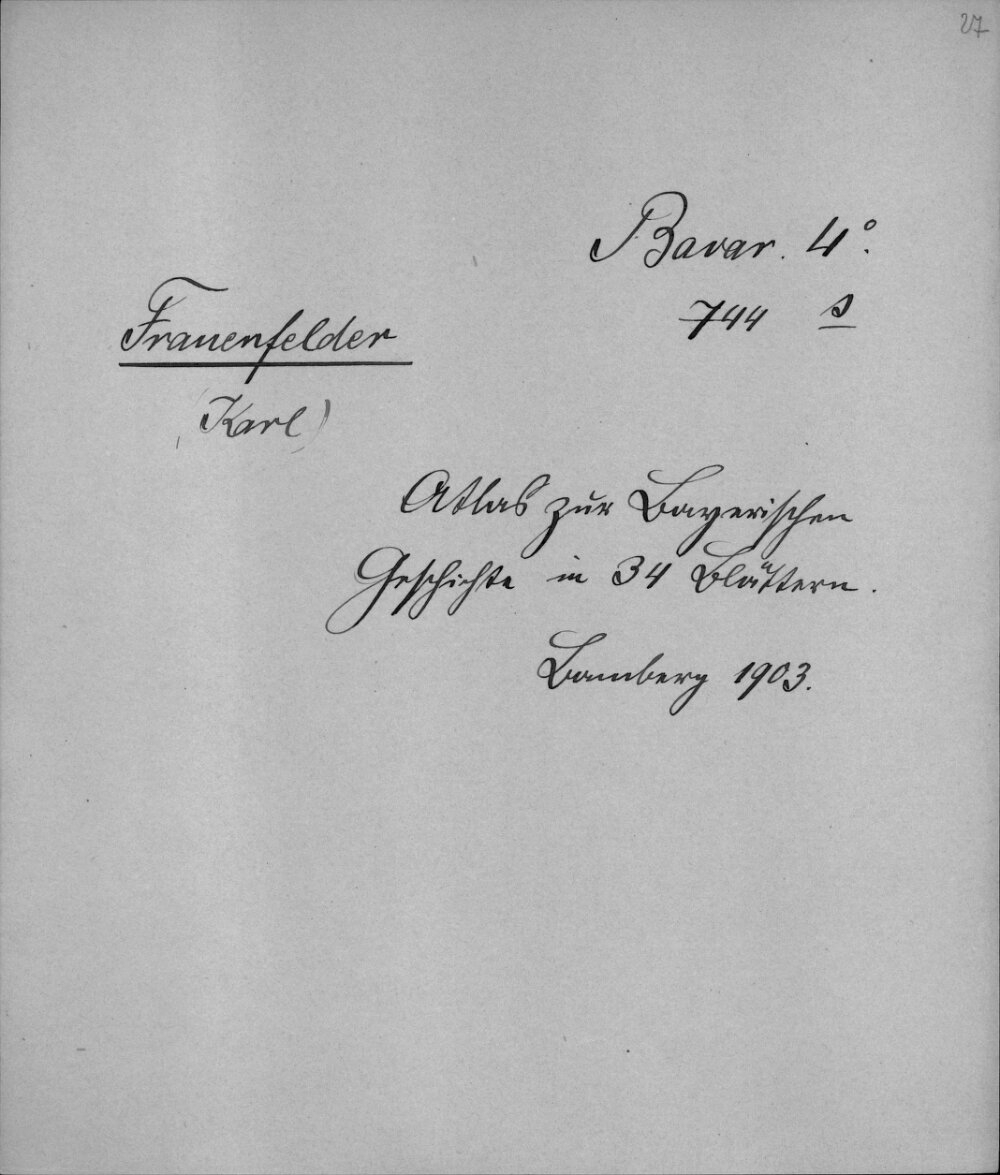 27
Bavar. 4°.
744 s
Frauenfelder
(Karl)
Atlas zur Bayerischen
Geschichte in 34 Blättern.
Bamberg 1903.